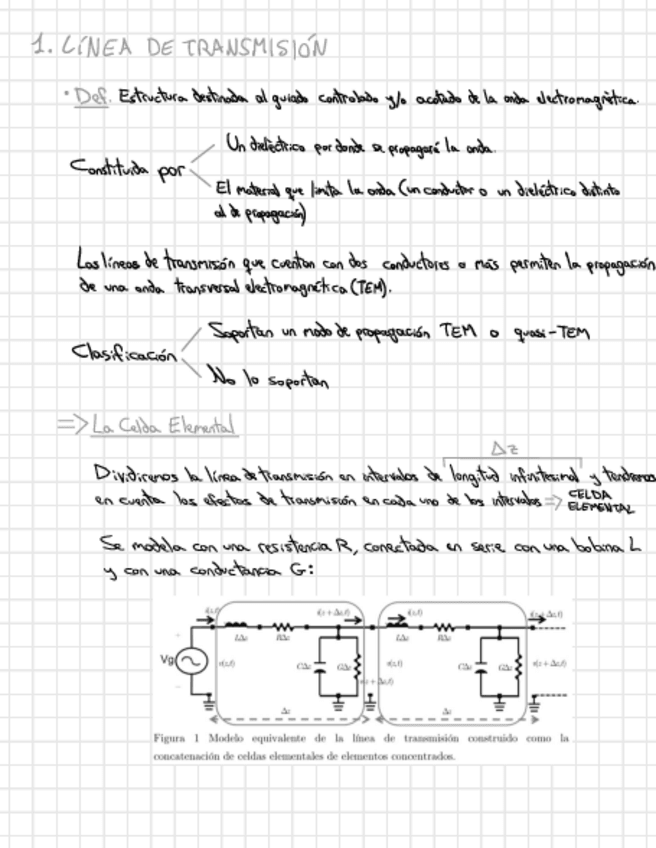 1. LÍNEA DE TRANSMISIÓN
· Def. Estructura destinada al guiado controlado y/o acotado de la onda electromagnética.
Un dieléctrico por donde se propagará la onda.
Constituida por
El material que limita la onda (un conductor o un dieléctrico distinto
al de propagación)
Las líneas de transmisión que cuentan con dos conductores o más permiten la propagación
de una onda transversal electromagnética (TEM).
Soportan un modo de propagación TEM o quasi-TEM
Clasificación
No lo soportan
=> La Celda Elemental
Δz
Dividiremos la línea de transmisión en intervalos de longitud infinitesimal y tendremos
en cuenta los efectos de transmisión en cada uno de los intervalos => CELDA
ELEMENTAL
Se modela con una resistencia R, conectada en serie con una bobina L
y con una conductancia G:
i(z,t) i(z+Δz,t) i(z,t) i(z+Δz,t)
LΔz RΔz LΔz RΔz
Vg v(z,t) CΔz GΔz v(z,t) CΔz GΔz v(z+Δz,t)
v(z+Δz,t)
Δz Δz
Figura 1 Modelo equivalente de la línea de transmisión construido como la
concatenación de celdas elementales de elementos concentrados.